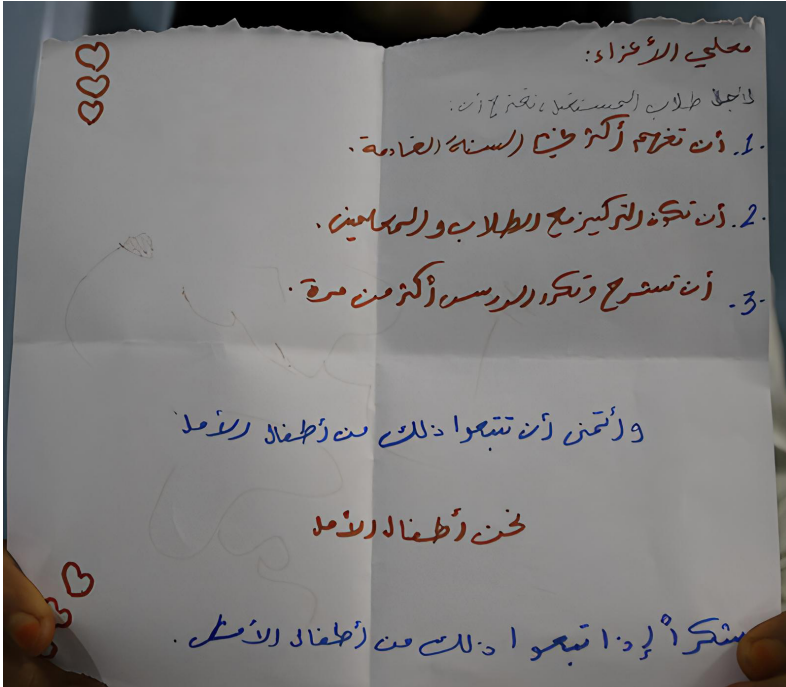 معلمي الأعزاء:
لأجل طلاب المستقبل، نقترح أن:
1. أن تفهم أكثر السنة القادمة.
2. أن تكون التركيز مع الطلاب والمعلمين.
3. أن تشرح وتكرر الدرس أكثر من مرة.
وأتمنى أن تتبعوا ذلك من أطفال الأمل
نحن أطفال الأمل
شكراً إذا تبعوا ذلك من أطفال الأمل.